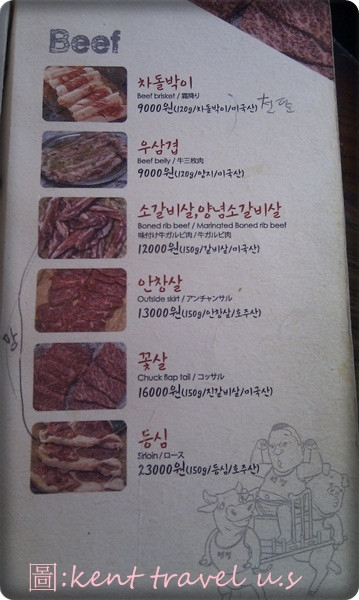 Beef
차돌박이
Beef brisket / 霜降り
9000원(120g/차돌박이/미국산)
우삼겹
Beef belly / 牛三枚肉
9000원(120g/양지/미국산)
소갈비살,양념소갈비살
Boned rib beef / Marinated Boned rib beef
味付け牛ガルビ肉 / 牛ガルビ肉
12000원(150g/갈비살/미국산)
안창살
Outside skirt / アンチャンサル
13000원(150g/안창살/호주산)
꽃살
Chuck flap tail / コッサル
16000원(150g/진갈비살/미국산)
등심
Sirloin / ロース
23000원(150g/등심/호주산)
圖:kent travel u.s